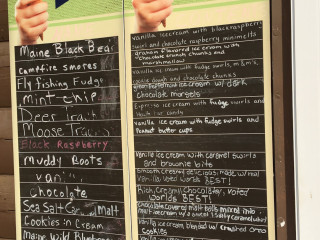 Maine Black Bear
campfire smores
Fly fishing Fudge
mint chip
Deer Tracks
Moose Tracks
Black Raspberry
muddy Boots
vanilla
chocolate
Sea Salt Malt
Cookies in Cream
Maine Wild
vanilla icecream with blackraspberry
swirl and chocolate raspberry minimelts
graham flavored ice cream with
chocolate crunch chunks and
marshmallow
vanilla ice cream with fudge swirls, m&m's,
cookie dough and chocolate chunks
ice cream w/ dark
chocolate morsels
Espresso ice cream w fudge swirls and
candy
vanilla ice cream with fudge swirls and
Peanut butter cups.
vanilla ice cream with caramel swirls
and brownie bits
Smooth, creamy, delicious, made w/real
vanilla voted Worlds BEST!
Rich, creamy, chocolatey, voted
Worlds BEST!
chocolate covered malt balls mixed into
malt ice cream w/ a sweet + salty caramel swirl
vanilla ice cream blended w/ crushed oreo
cookies